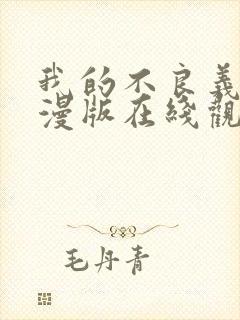 我的不良義
漫版在綫觀
毛丹青